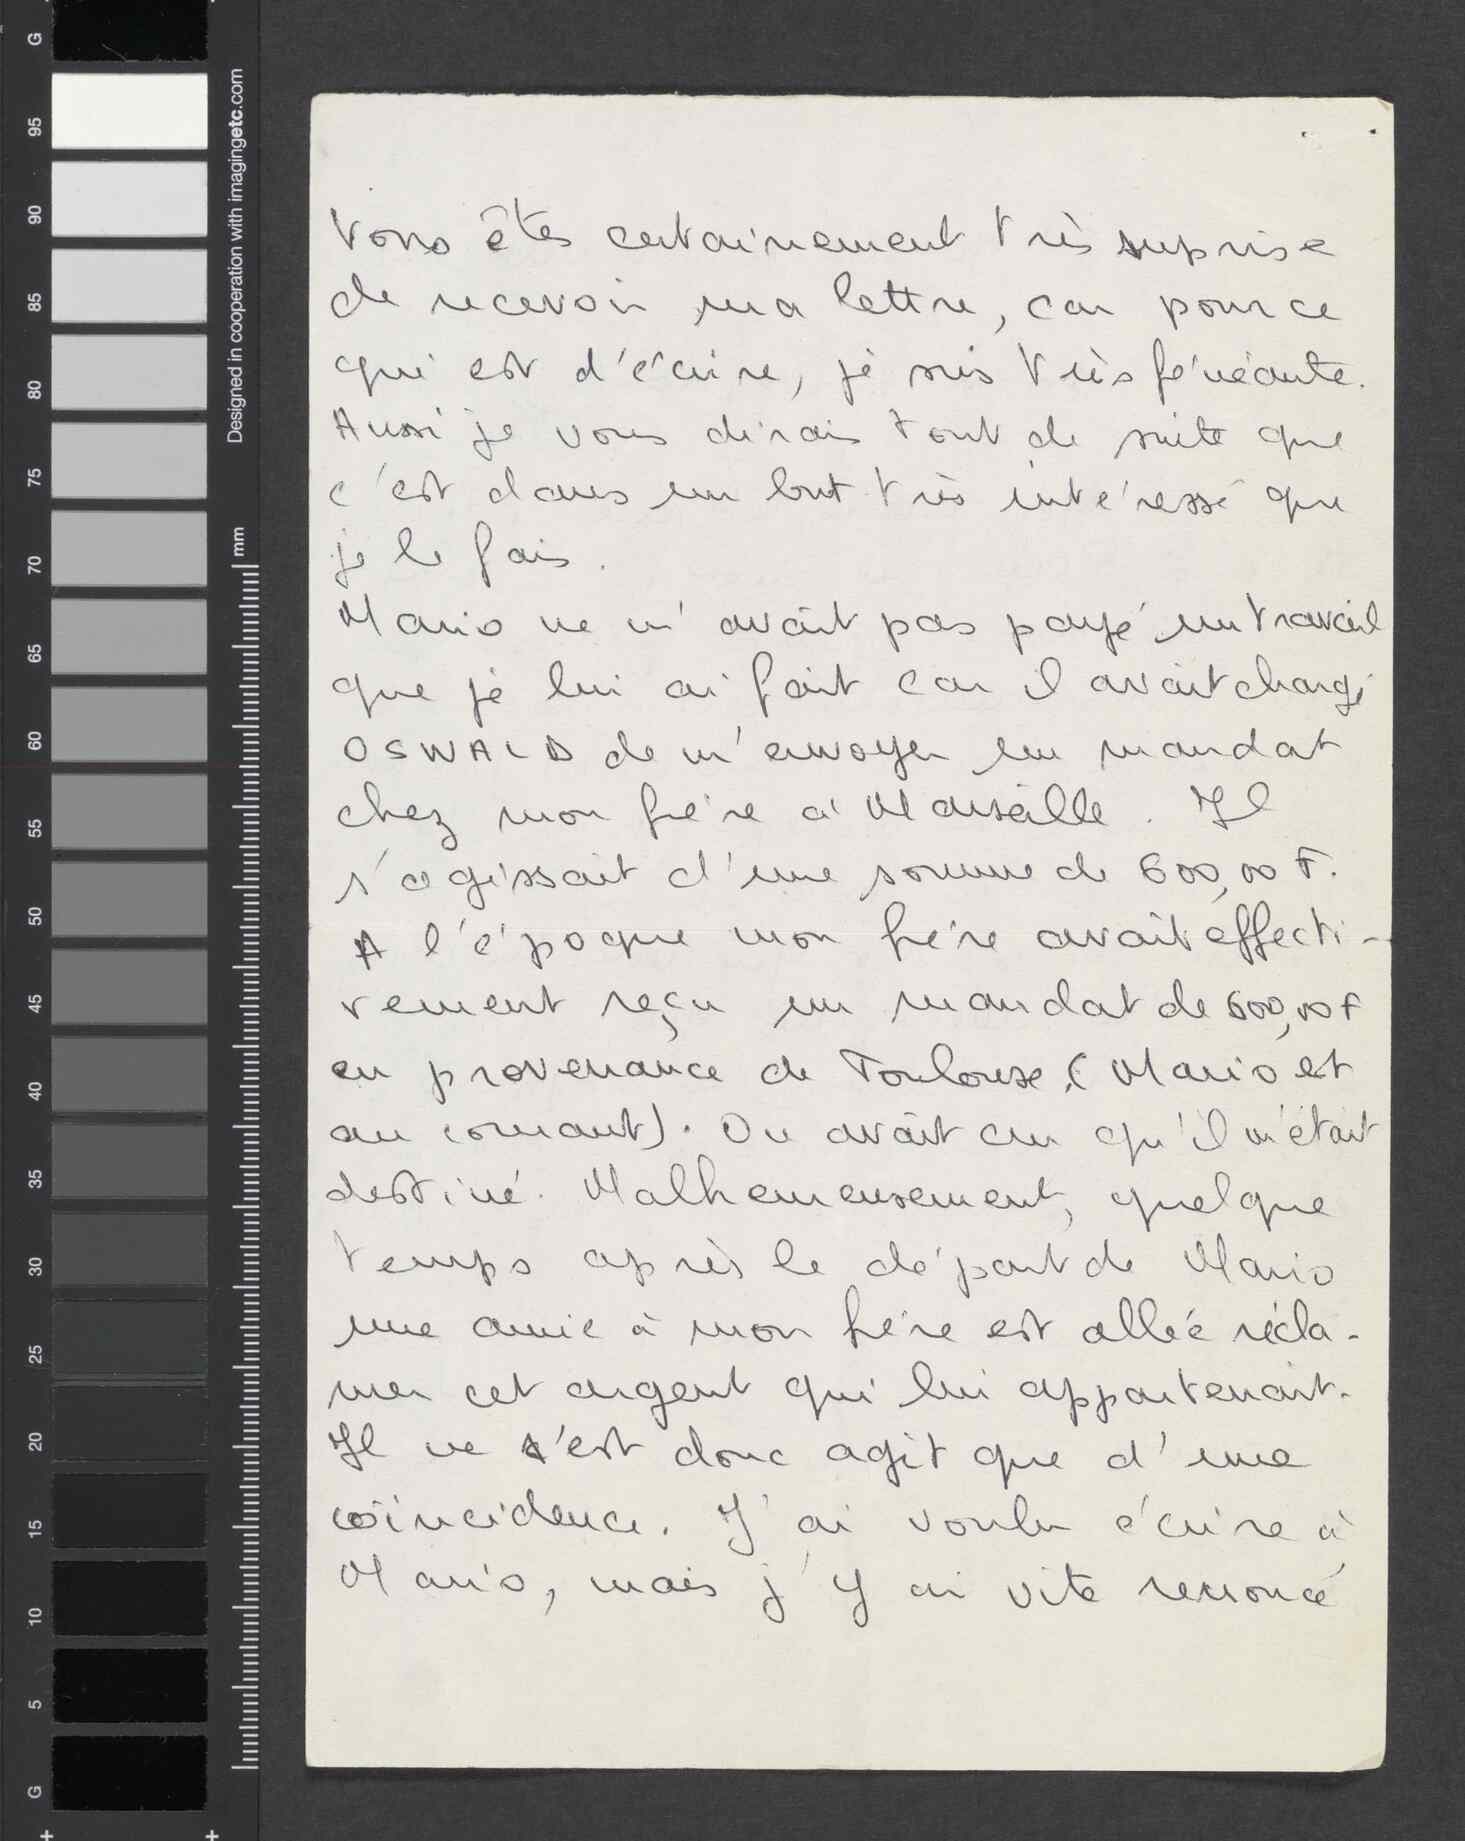 G
95
90
85
80
75
70
65
60
55
50
45
40
35
30
25
20
15
10
5
G
Designed in cooperation with imagingetc.com
mm
Vous êtes certainement très suprise
de recevoir ma lettre, car pour ce
qui est d'écrire, je suis très fénéante.
Aussi je vous dirais tout de suite que
c'est dans un but très intéressé que
je le fais.
Mario ne m'avait pas payé un travail
que je lui ai fait car il avait chargé
OSWALD de m'envoyer un mandat
chez mon frère à Marseille. Il
s'agissait d'une somme de 600,00 F.
A l'époque mon frère avait éffecti-
vement reçu un mandat de 600,00 F
en provenance de Toulouse (Mario est
au courant). On avait cru qu'il m'était
destiné. Malheureusement, quelque
temps après le départ de Mario
une amie à mon frère est allée récla-
mer cet argent qui lui appartenait.
Il ne s'est donc agit que d'une
coïncidence. J'ai voulu écrire à
Mario, mais j'y ai vite renoncé